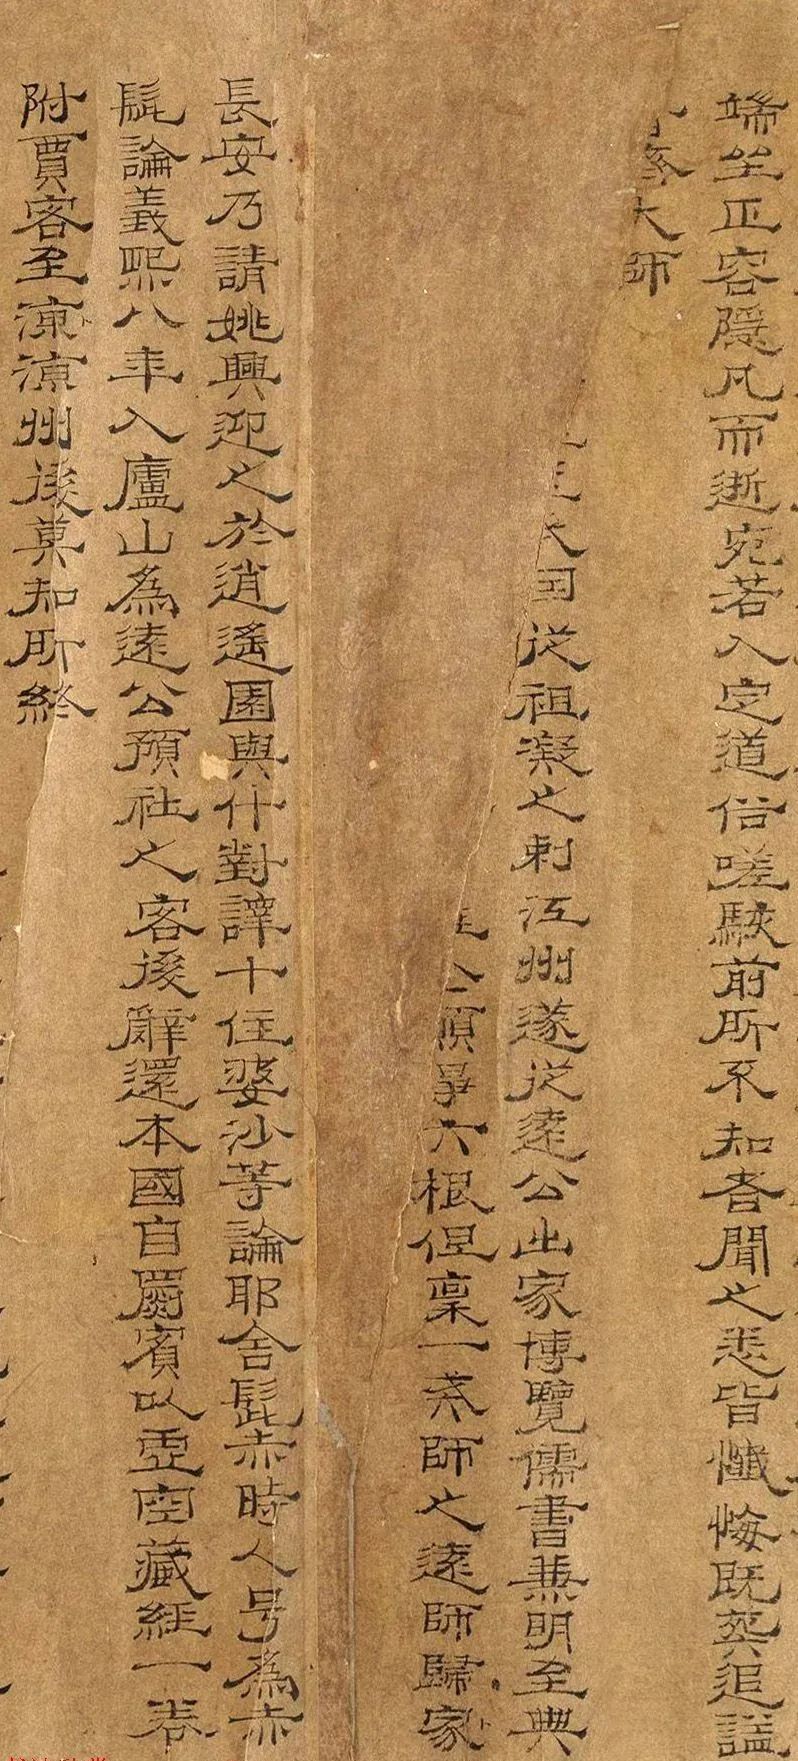 端坐正容隱凡而逝宛若入定道俗嗟駭前所不知者聞之悉皆懺悔既葬追謚
大師
大国從祖凝之刺江州遂從遠公出家博覽儒書兼明至典
六根但稟一乘師之遠師歸家
長安乃請姚興迎之於逍遙園與什對譯十住婆沙等論耶舍髭赤時人号為赤
髭論義熙八年入廬山為遠公預社之客後辭還本國自罽賓以虛空藏經一卷
附賈客至涼涼州後莫知所終